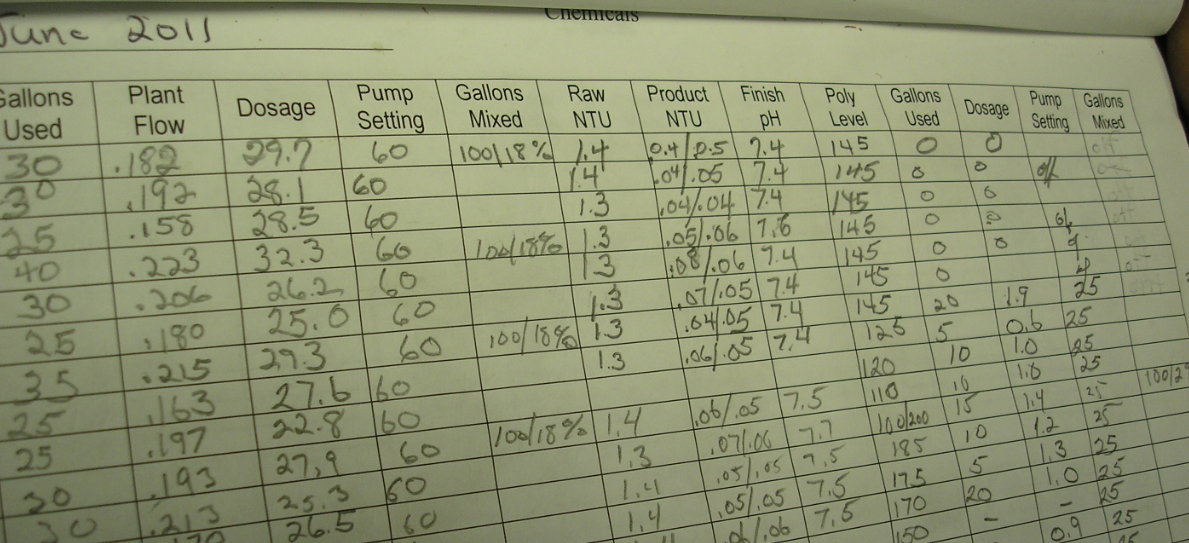 June 2011
Chemicals
Gallons Used Plant Flow Dosage Pump Setting Gallons Mixed Raw NTU Product NTU Finish pH Poly Level Gallons Used Dosage Pump Setting Gallons Mixed
30 .182 29.7 60 100/18% 1.4 0.4/0.5 7.4 145 0 0 off
30 .192 28.1 60 1.4 .04/.05 7.4 145 0 0 off
25 .158 28.5 60 1.3 .04/.04 7.4 145 0 0
40 .223 32.3 60 100/18% 1.3 .05/.06 7.6 145 0 0
30 .206 26.2 60 1.3 .08/.06 7.4 145 0 0
25 .180 25.0 60 1.3 .07/.05 7.4 145 0 25
35 .215 29.3 60 100/18% 1.3 .04/.05 7.4 145 20 1.9 25
25 .163 27.6 60 1.3 .06/.05 7.4 125 5 0.6 25
25 .197 22.8 60 120 10 1.0 25
30 .193 27.9 60 100/18% 1.4 .06/.05 7.5 110 10 1.8 25
30 .213 25.3 60 1.3 .07/.06 7.7 100/200 15 1.4 25
26.5 60 1.4 .05/.05 7.5 185 10 1.2 25
1.4 .05/.05 7.5 175 5 1.3 25
170 20 1.0 25
150 - - 25
0.9 25